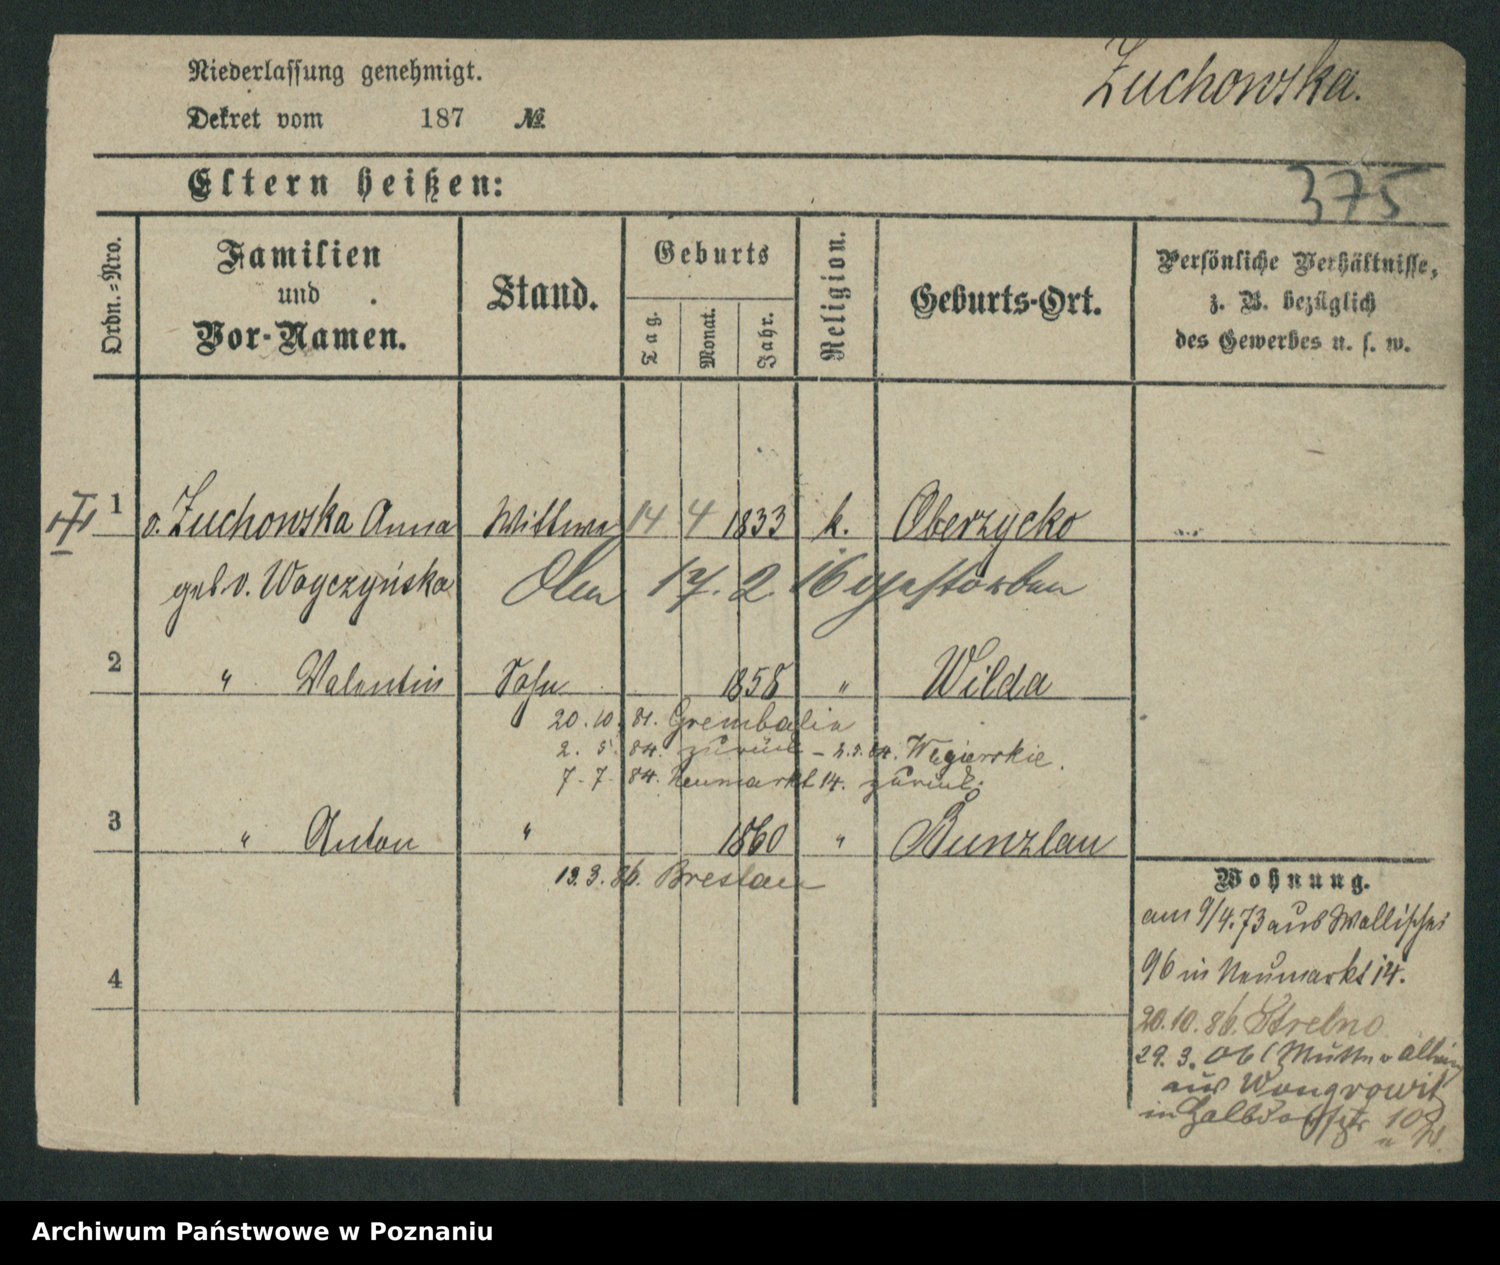 Niederlassung genehmigt.
Zuchowska.
Dekret vom 187 №
Eltern heißen:
375
Ordn.=Nro.
Familien und Vor-Namen.
Stand.
Geburts
Tag.
Monat.
Jahr.
Religion.
Geburts-Ort.
Persönliche Verhältnisse,
z. B. bezüglich
des Gewerbes u. s. w.
1 v. Zuchowska Anna Wittwe 14 4 1833 k. Oberzycko
geb v. Woyczyńska Am 17. 2. 16 gestorben
2 " Valentin Sohn 1858 " Wilda
20. 10. 81. Grembalin
2. 5. 84. zurück – 2.5.84. Węgierskie.
7. 7. 84. Neumarkt 14. zurück.
3 " Anton " 1860 " Bunzlau
13. 3. 86. Breslau
Wohnung.
am 9/4.73 aus Wallischei
96 in Neumarkt 14.
4
20.10.86. Strelno
29. 3. 06 (Mutter allein
aus Wongrowitz
in Halbdorfstr 10